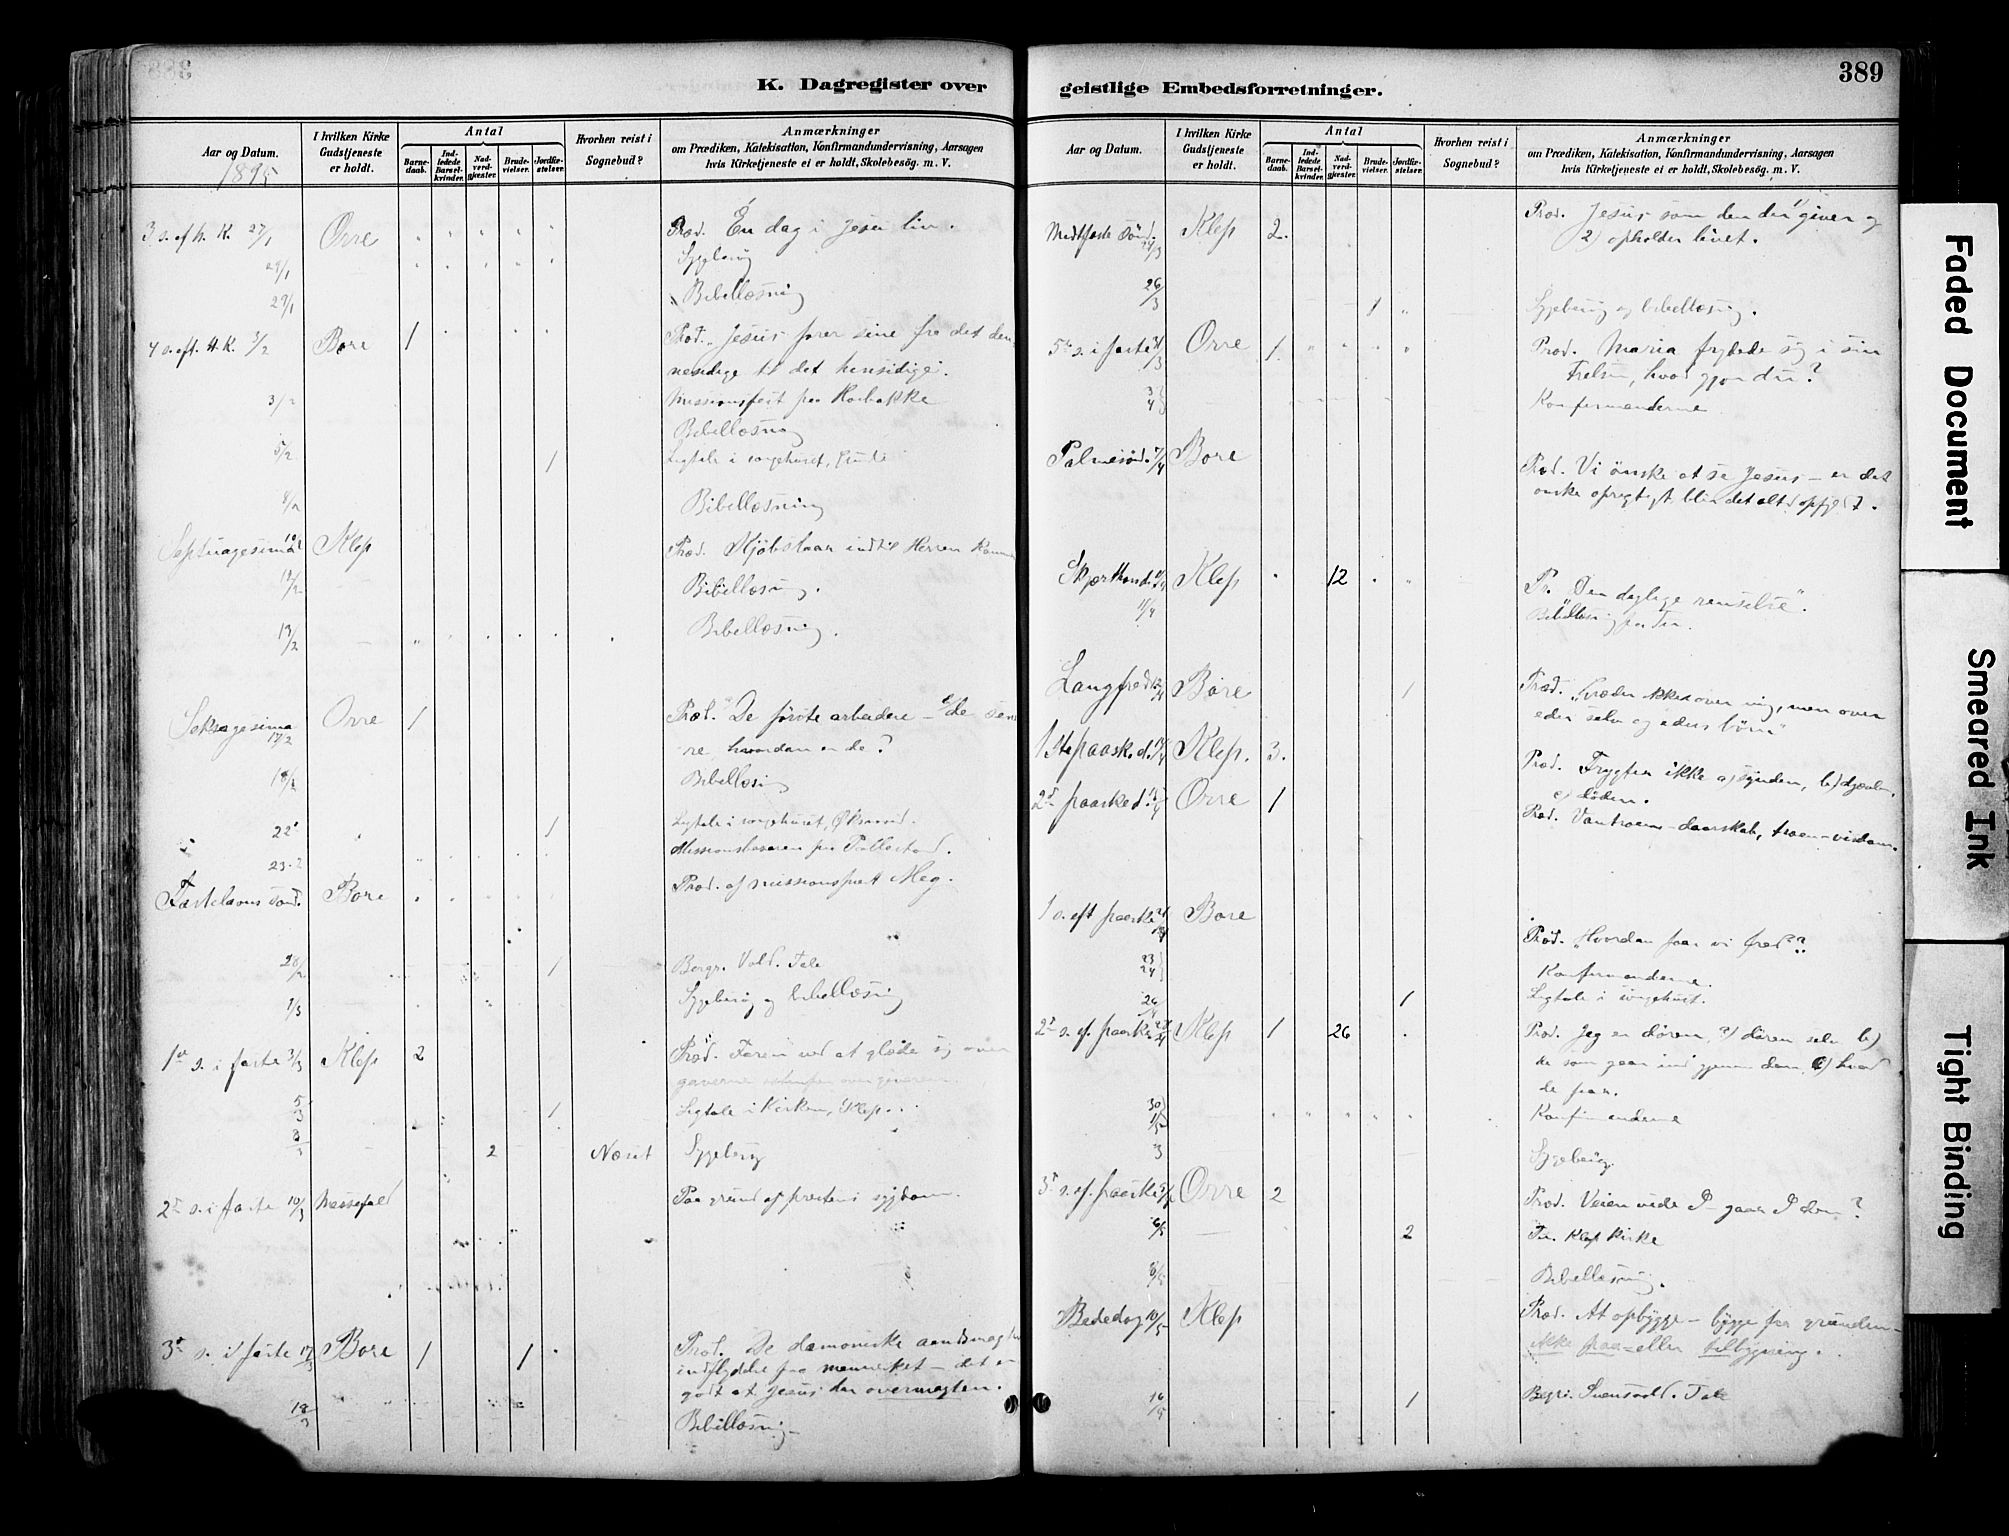 K. Dagregister over
Aar og Datum.
1895
I hvilken Kirke Gudstjeneste er holdt.
Antal
Barne-daab.
Ind-ledede Barsel-kvinder.
Nad-verd-gjester.
Brude-vielser.
Jordfæ-stelser.
Hvorhen reist i Sognebud?
Anmærkninger
om Prædiken, Katekisation, Konfirmandundervisning, Aarsagen
hvis Kirketjeneste ei er holdt, Skolebesög. m. V.
3 s. ef h. K. 27/1 Orre Præd. En dag i Jesu liv.
29/1 Sygebesøg
29/1 Bibellæsning
4 s. eft. H. K. 3/2 Bore 1 Præd. Jesus fører sine fra det den-
nesidige til det hinsidige.
3/2 Missionsfest paa
Bibellæsning
5/2 1 Ligtale i sørgehuset,
8/2 Bibellæsning
Septuagesima 10/2 Klep Præd. indtil Herren
12/2 Bibellæsning.
13/2 Bibellæsning.
Seksagesima 17/2 Orre 1 Præd. De første arbeidere – de sene-
re hvordan er de?
18/2 Bibellæsning
22 1 Ligtale i sørgehuset,
23-2 Missionsbasaren paa
Fastelavns sønd. Bore Præd. af missionsprest
28/2 1 Begr. Vold. Tale
1/3 Sygebesøg og bibellæsning
1ste s. i faste 3/3 Klep 2 Præd. Faren ved at glæde sig over
gaverne over giveren.
5/3 1 Ligtale i Kirken, Klep.
8/3 2 Næset Sygebesøg
2den s. i faste 10/3 Messefald Paa grund af prestens sygdom.
3die s. i faste 17/3 Bore 1 1 Præd. De dæmoniske aandsmagter
indflydelse paa mennesket – det er
godt at Jesus har overmagten.
18/3 Bibellæsning
geistlige Embedsforretninger.
389
Aar og Datum.
I hvilken Kirke Gudstjeneste er holdt.
Antal
Barne-daab.
Ind-ledede Barsel-kvinder.
Nad-verd-gjester.
Brude-vielser.
Jordfæ-stelser.
Hvorhen reist i Sognebud?
Anmærkninger
om Prædiken, Katekisation, Konfirmandundervisning, Aarsagen
hvis Kirketjeneste ei er holdt, Skolebesög. m. V.
Midtfaste Sønd. 24/3 Klep 2. Præd. Jesus som den der 1) giver og
2) opholder livet.
26/3 1 Sygebesøg og bibellæsning.
5te s. i faste 31/3 Orre 1. Præd. Maria frydede sig i sin
Frelser, hvad gjør du?
3/4 Konfirmanderne
Palmesønd. 7/4 Bore
Præd. Vi ønske at se Jesus – er det
ønske oprigtigt blir det altid opfyldt.
Skjærthorsd. 11/4 Klep 12 Pr. "Den daglige renselse".
11/4 Bibellæsning
Langfred. 12/4 Bore 1 Præd. "Græder ikke over mig, men over
eder selv og eders børn"
1ste paaske d. 14/4 Klep. 3. Præd. Frygter ikke a) synden, b) djævelen,
c) døden.
2den paasked. 15/4 Orre 1 Præd. Vantroens daarskab, troens visdom.
1 s. eft paaske 21/4 Bore
Præd. "Hvordan faar vi fred"?
23 24 Konfirmanderne.
26/4 1 Ligtale i sørgehuset.
2den s. ef. paaske 28/4 Klep 1 26 Præd. Jeg er døren, a) døren selv b)
de som gaar ind gjennem den, c) hvad
de faar.
30 1/5 Konfirmanderne
3 Sygebesøg.
3die s. ef. paaske 5/5 Orre 2 Præd. Veien vide I – gaar I den?
6/5 2 Klep kirke
8/5 Bibellæsning.
Bededag 10/5 Klep Præd. At opbygge – bygge fra grunden –
ikke paa- eller tilbygning.
16/5 1 Begr. Tale
Faded Document
Smeared Ink
Tight Binding